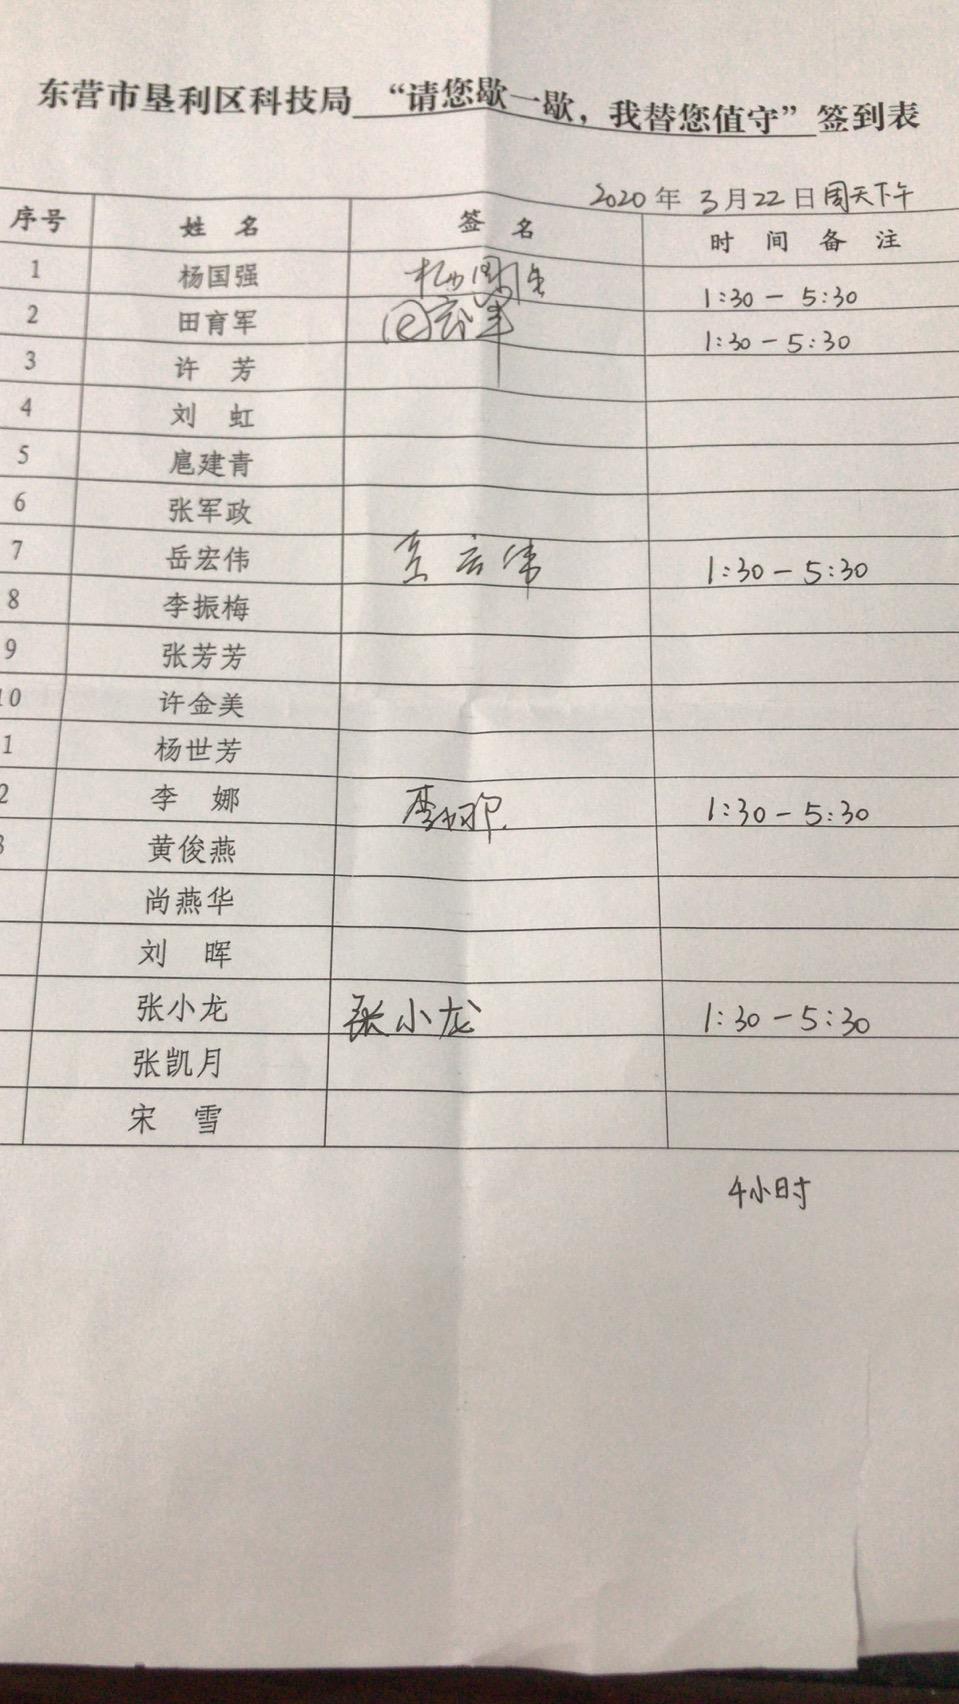 东营市垦利区科技局 “请您歇一歇，我替您值守” 签到表
2020 年 3 月 22 日 周天下午
序号 姓 名 签 名 时 间 备 注
1 杨国强 杨国强 1:30 — 5:30
2 田育军 田育军 1:30 — 5:30
3 许 芳
4 刘 虹
5 扈建青
6 张军政
7 岳宏伟 岳宏伟 1:30 — 5:30
8 李振梅
9 张芳芳
10 许金美
1 杨世芳
2 李 娜 李娜 1:30 — 5:30
3 黄俊燕
尚燕华
刘 晖
张小龙 张小龙 1:30 — 5:30
张凯月
宋 雪
4小时